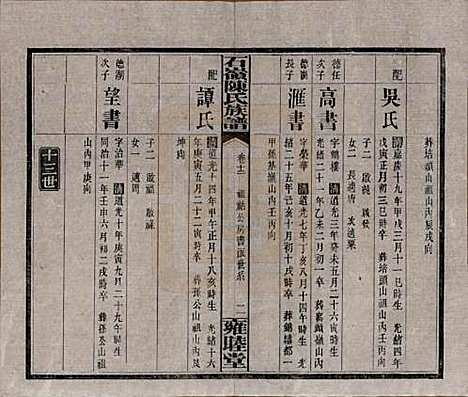 葬培頭山祖山內辰戌向
配
吳氏
嘉慶十九年甲戌三月十一巳時生 光緒四年
戊寅正月初三巳時卒 葬培頭山祖山內丙向
子二 啟
女二 長適唐 次適粟
德任
次子
高書
字鶴樓 清道光三年癸未五月二十六寅時生
光緒二十一年乙未二月初一
山內丙向
德湖
長子
滙書
字榮華 清道光七年丁亥八月十四午時生 光
緒二十五年己亥十月初十戌時卒 葬
甲孫基嶺山內壬丙向
石嶺陳氏族譜
卷十二
祖祜公房書滙世系
二
雍睦堂
配
譚氏
清道光十四年甲午正月十八亥時生 光緒十六
年庚寅五月二十二寅時卒 葬孫公山祖山內
坤向
子二 啟福 啟
女一 適周
德湖
次子
望書
字治華 清道光十年庚寅九月二十九午時生
同治十一年壬申六月初二戌時卒 葬孫公山祖
山內甲庚向
十三世